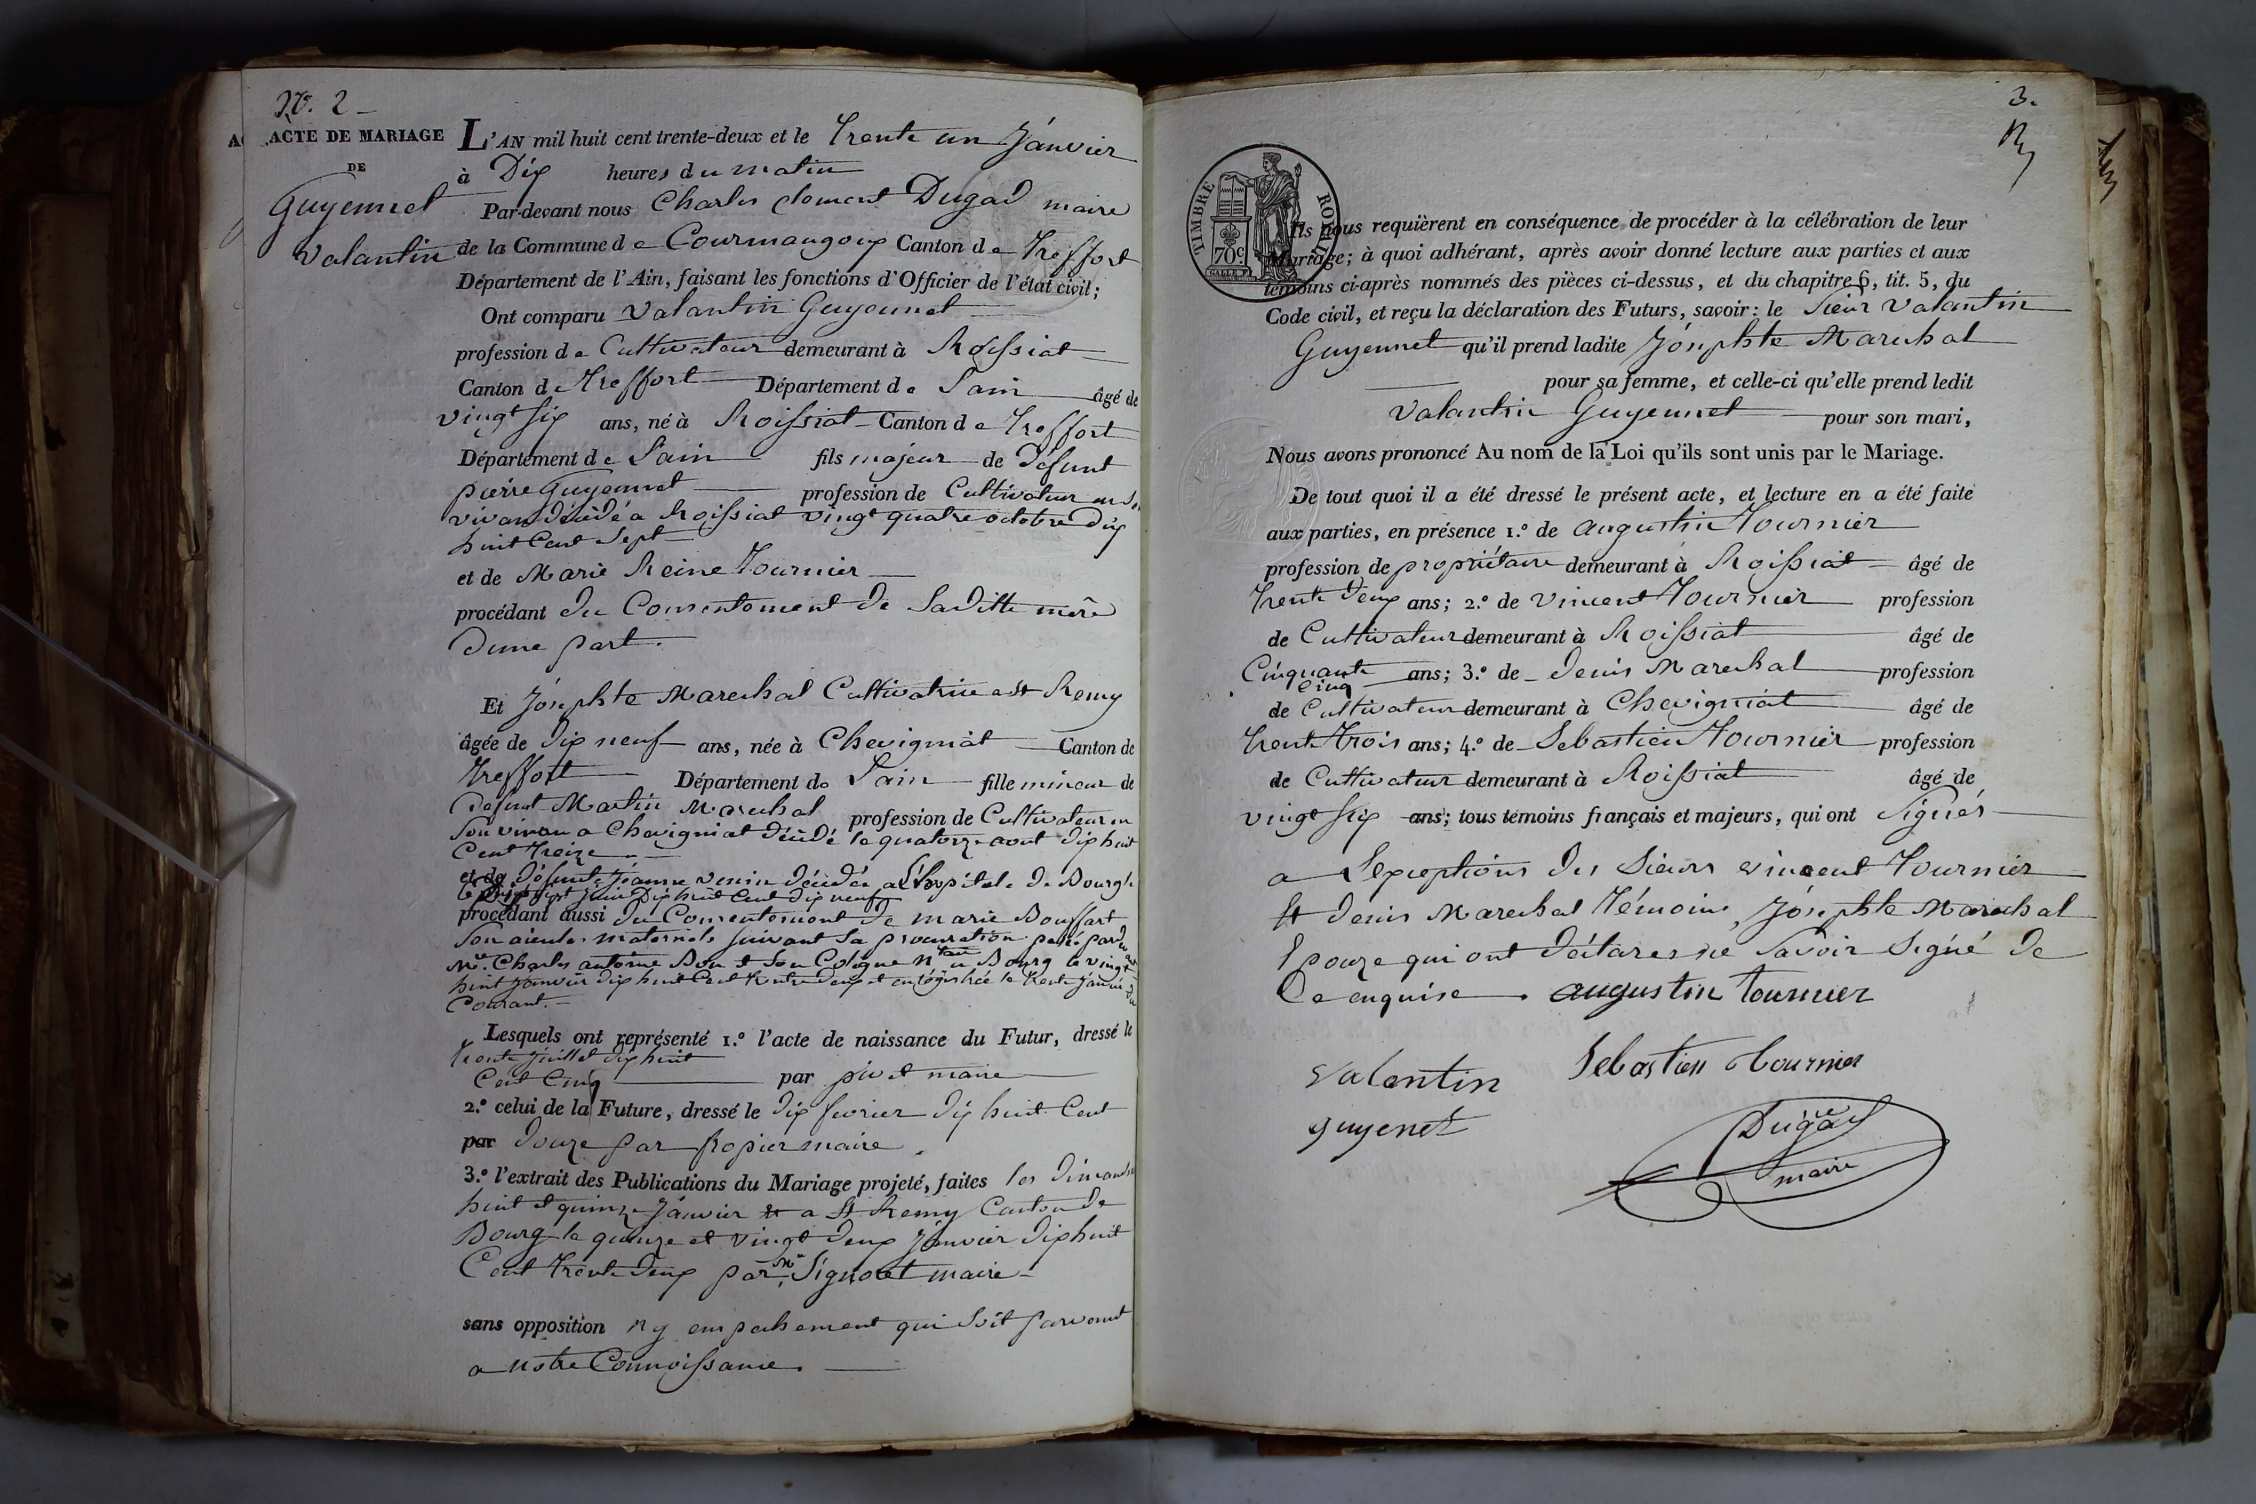 N.º 2
ACTE DE MARIAGE
DE
Guyennet
Valantin
L'AN mil huit cent trente-deux et le trente un Janvier
à Dix heures du matin
Par-devant nous Charles Clement Dugad maire
de la Commune de Courmangoux Canton de Treffort
Département de l'Ain, faisant les fonctions d'Officier de l'état civil;
Ont comparu Valantin Guyennet
profession de Cultivateur demeurant à Roissiat
Canton de Treffort Département de Lain âgé de
vingt six ans, né à Roissiat Canton de Treffort
Département de Lain fils majeur de Defunt
pierre Guyennet profession de Cultivateur en Son
vivan décédé a Roissiat vingt quatre octobre dix
huit Cent Sept
et de Marie Reine Tournier
procédant du Consentement de Saditte mère
dune part.
Et Joséphte Marechal Cultivatrice a St Remy
âgée de dix neuf ans, née à Chevigniat Canton de
Treffort Département de Lain fille mineur de
defunt Martin Marechal profession de Cultivateur en
Son vivan a Chevigniat décédé le quatorze aout dix huit
Cent treize
et de défunte Jeanne venin décédée a L'hopitale de Bourg le
Juin dix huit Cent dix neuf
procédant aussi du Consentement de marie Bouffart
Son aieule maternele suivant sa procuration passé par
Me. Charles antoine Bon n.taire a Bourg le vingt
huit Janvier dix huit Cent trente deux et enregistrée le trente Janvier
Courant.
Lesquels ont représenté 1.º l'acte de naissance du Futur, dressé le
trente Juillet dix huit
Cent Cinq par pivet maire
2.º celui de la Future, dressé le dix fevrier dix huit Cent
par douze par fropier maire
3.º l'extrait des Publications du Mariage projeté, faites les dimanche
huit et quinze Janvier et a St Remy Canton de
Bourg le quinze et vingt deux Janvier dix huit
Cent trente deux par Mr Signoret maire
sans opposition ny empechement qui Soit parvenut
a notre Connoissance.
3.
TIMBRE ROYAL
70c
Ils nous requièrent en conséquence de procéder à la célébration de leur
Mariage; à quoi adhérant, après avoir donné lecture aux parties et aux
témoins ci-après nommés des pièces ci-dessus, et du chapitre 6, tit. 5, du
Code civil, et reçu la déclaration des Futurs, savoir: le Sieur Valantin
Guyennet qu'il prend ladite Joséphte Marechal
pour sa femme, et celle-ci qu'elle prend ledit
Valantin Guyennet pour son mari,
Nous avons prononcé Au nom de la Loi qu'ils sont unis par le Mariage.
De tout quoi il a été dressé le présent acte, et lecture en a été faite
aux parties, en présence 1.º de augustin Tournier
profession de propriétaire demeurant à Roissiat âgé de
trente deux ans; 2.º de vincent Tournier profession
de Cultivateur demeurant à Roissiat âgé de
Cinquante cinq ans; 3.º de Denis Marechal profession
de Cultivateur demeurant à Chevigniat âgé de
trente trois ans; 4.º de Sebastien Tournier profession
de Cultivateur demeurant à Roissiat âgé de
vingt six ans; tous témoins français et majeurs, qui ont Signés
a Lexceptions des Sieurs vincent Tournier
Et Denis Marechal témoins, Joséphte Marechal
Epouze qui ont déclares ne Savoir Signé de
Ce enquise. augustin tournier
Valentin Sebastien tournier
guyenet
Dugad
maire